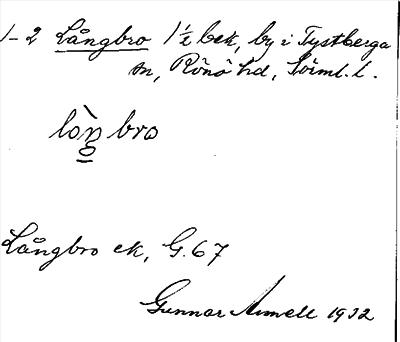 1-2 Långbro 1½ bek, by i Tystberga
sn, Rönö hd, Sörml. l.
lòŋ bro
Långbro ek, G. 67
Gunnar Armell 1932